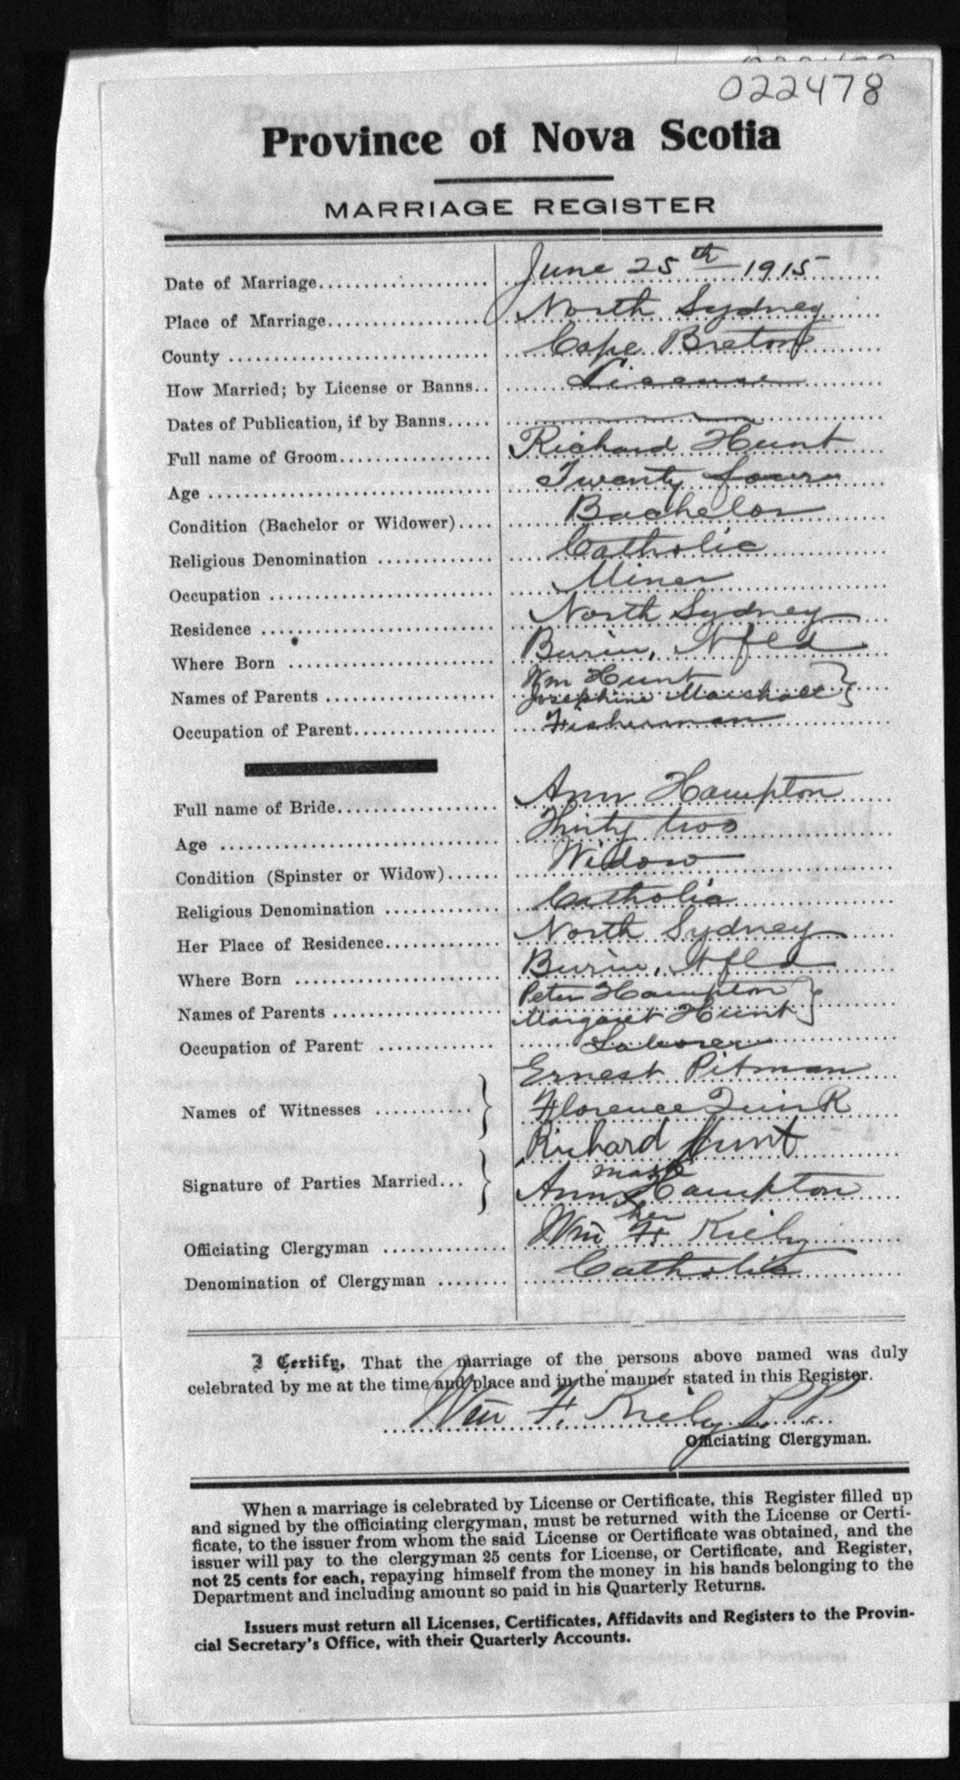 022478
Province of Nova Scotia
MARRIAGE REGISTER
Date of Marriage.................... June 25th 1915
Place of Marriage.................. North Sydney
County ............................ Cape Breton
How Married; by License or Banns.. License
Dates of Publication, if by Banns.....
Full name of Groom................. Richard Hunt
Age ............................... Twenty four
Condition (Bachelor or Widower).... Bachelor
Religious Denomination ............ Catholic
Occupation ........................ Miner
Residence ......................... North Sydney
Where Born ........................ Burin, Nfld
Names of Parents .................. Wm Hunt
Josephine Marshall
Occupation of Parent................ Fisherman
Full name of Bride.................. Ann Hampton
Age ............................... Thirty two
Condition (Spinster or Widow)...... Widow
Religious Denomination ............ Catholic
Her Place of Residence............. North Sydney
Where Born ........................ Burin, Nfld
Names of Parents .................. Peter Hampton
Margaret Hunt
Occupation of Parent .............. Laborer
Ernest Pitman
Names of Witnesses ........... Florence Quirk
Richard Hunt
mark
Signature of Parties Married... Ann X Hampton
her
Officiating Clergyman ............. Wm F. Kiely
Denomination of Clergyman ........ Catholic
I Certify, That the marriage of the persons above named was duly
celebrated by me at the time and place and in the manner stated in this Register.
Wm F. Kiely P.P.
Officiating Clergyman.
When a marriage is celebrated by License or Certificate, this Register filled up
and signed by the officiating clergyman, must be returned with the License or Certi-
ficate, to the issuer from whom the said License or Certificate was obtained, and the
issuer will pay to the clergyman 25 cents for License, or Certificate, and Register,
not 25 cents for each, repaying himself from the money in his hands belonging to the
Department and including amount so paid in his Quarterly Returns.
Issuers must return all Licenses, Certificates, Affidavits and Registers to the Provin-
cial Secretary's Office, with their Quarterly Accounts.